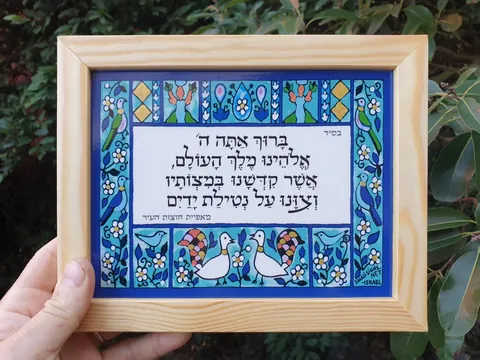 בס"ד
בָּרוּךְ אַתָּה ה'
אֱלֹהֵינוּ מֶלֶךְ הָעוֹלָם,
אֲשֶׁר קִדְּשָׁנוּ בְּמִצְוֹתָיו
וְצִוָּנוּ עַל נְטִילַת יָדַיִם
מאפיית חוצות העיר
ISRAEL